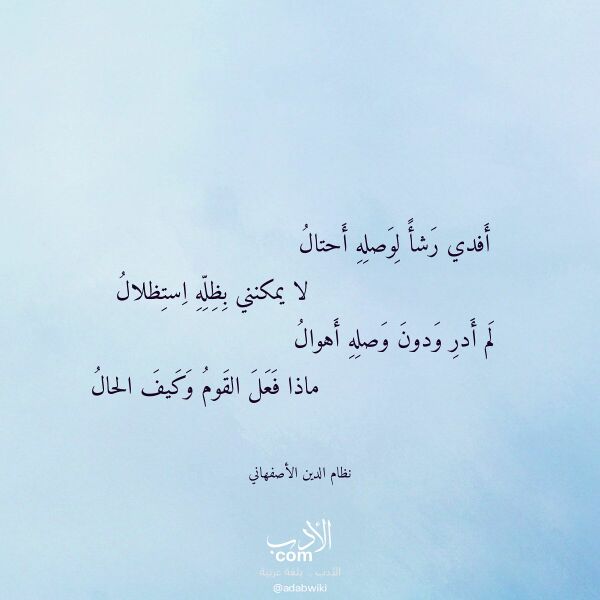 أَفدي رَشأً لِوَصلِهِ أَحتالُ
لا يمكنني بِظِلِّهِ اِستِظلالُ
لَم أَدرِ وَدونَ وَصلِهِ أَهوالُ
ماذا فَعَلَ القَومُ وَكَيفَ الحالُ
نظام الدين الأصفهاني
الأدب
com
الأدب .. بلغة عربية
@adabwiki